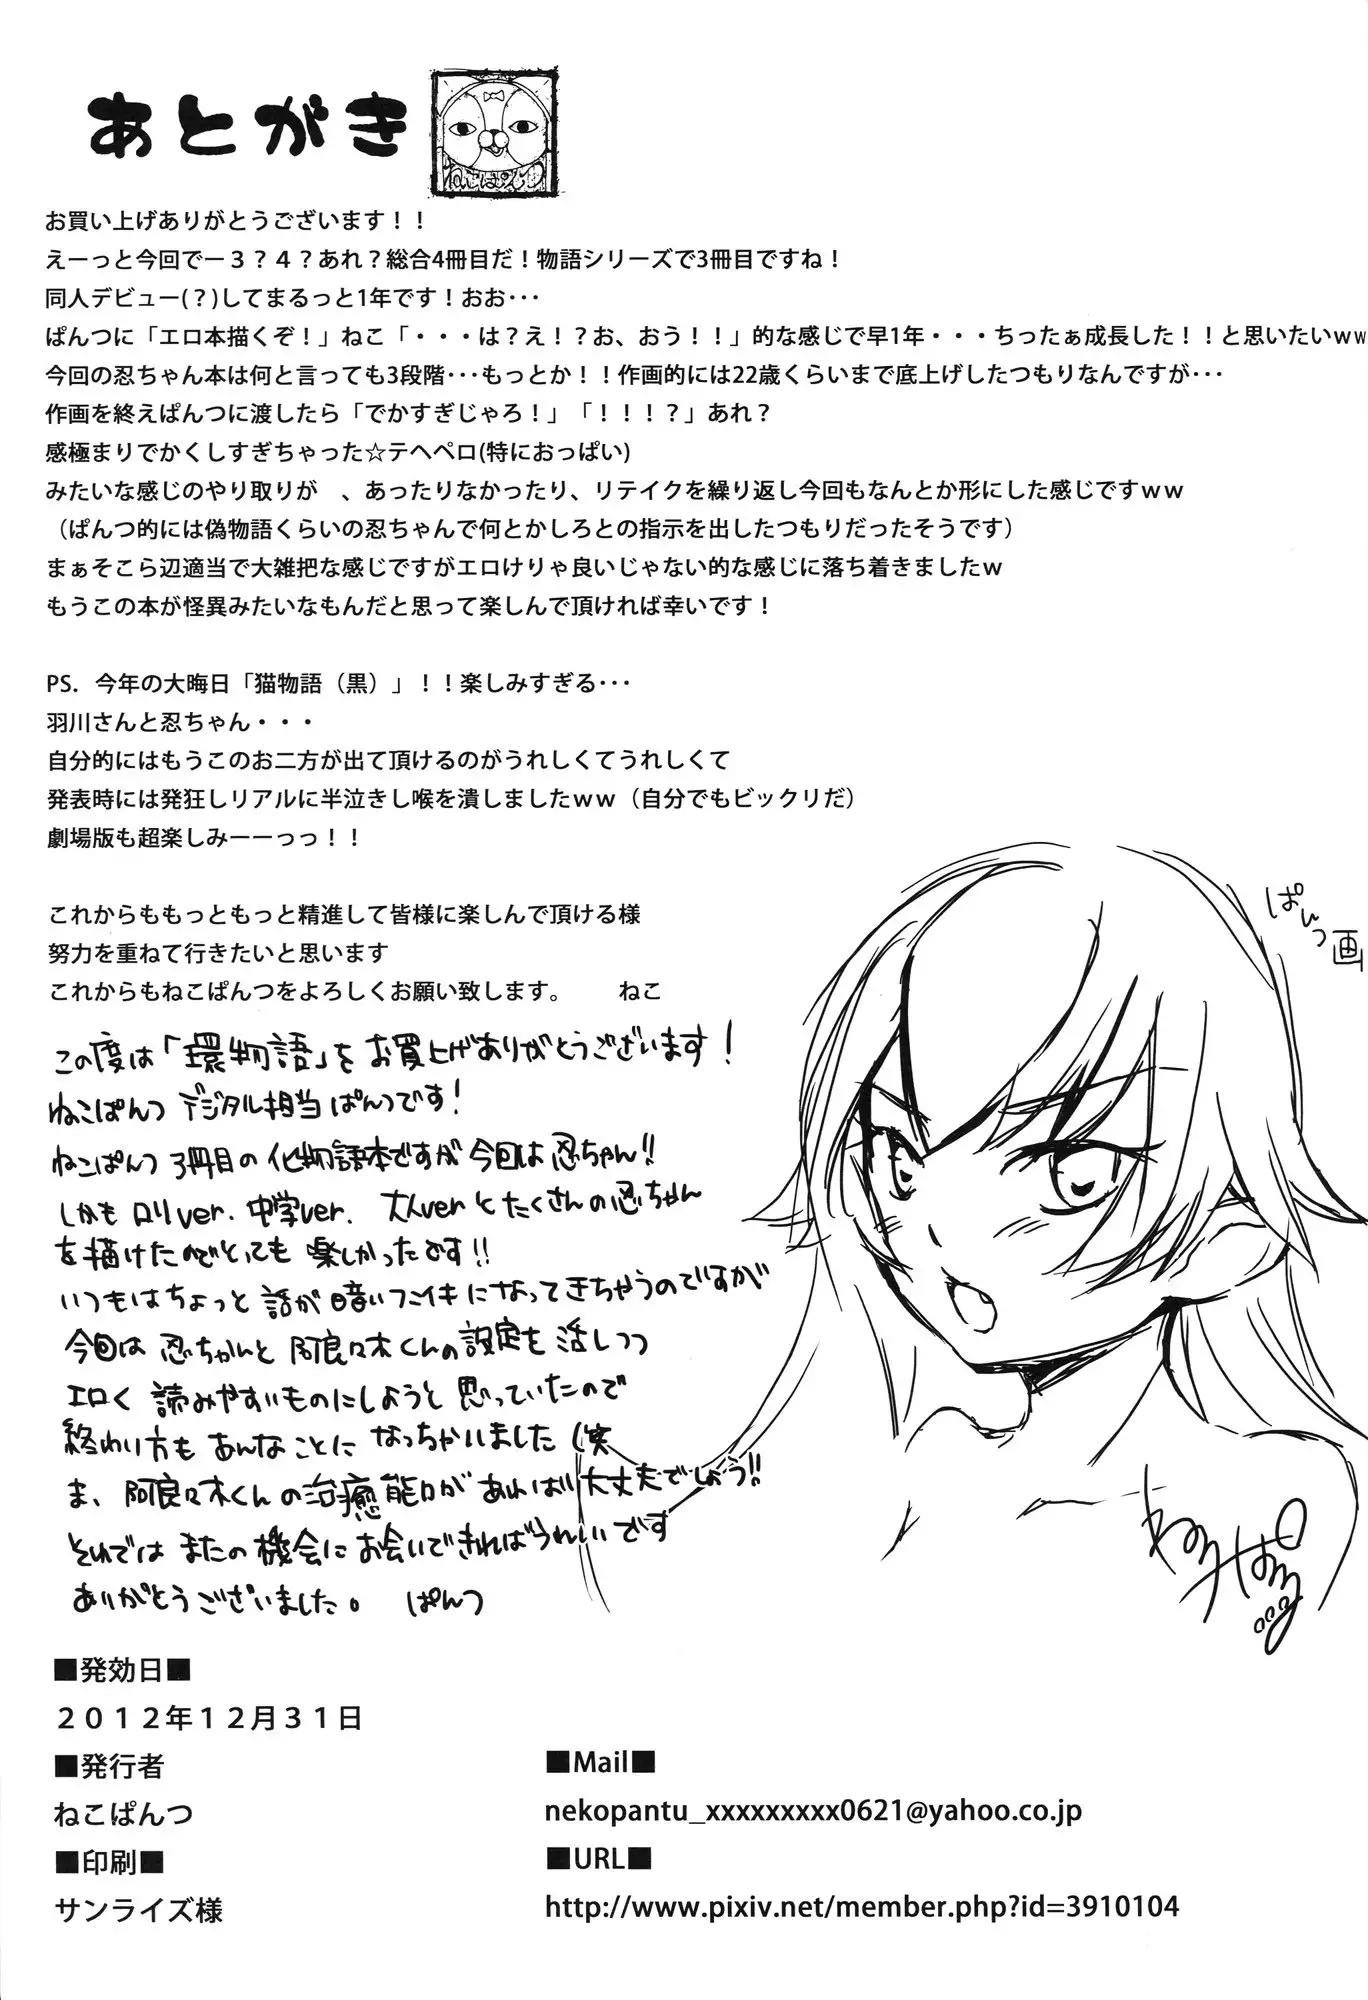 あとがき
ねこぱんつ
お買い上げありがとうございます！！
えーっと今回でー３？４？あれ？総合4冊目だ！物語シリーズで3冊目ですね！
同人デビュー(？)してまるっと1年です！おお･･･
ぱんつに「エロ本描くぞ！」ねこ「・・・は？え！？お、おう！！」的な感じで早1年・・・ちったぁ成長した！！と思いたいｗｗ
今回の忍ちゃん本は何と言っても3段階･･･もっとか！！作画的には22歳くらいまで底上げしたつもりなんですが･･･
作画を終えぱんつに渡したら「でかすぎじゃろ！」「！！！？」あれ？
感極まりでかくしすぎちゃった☆テヘペロ(特におっぱい)
みたいな感じのやり取りが　、あったりなかったり、リテイクを繰り返し今回もなんとか形にした感じですｗｗ
（ぱんつ的には偽物語くらいの忍ちゃんで何とかしろとの指示を出したつもりだったそうです）
まぁそこら辺適当で大雑把な感じですがエロけりゃ良いじゃない的な感じに落ち着きましたｗ
もうこの本が怪異みたいなもんだと思って楽しんで頂ければ幸いです！
PS．今年の大晦日「猫物語（黒）」！！楽しみすぎる･･･
羽川さんと忍ちゃん・・・
自分的にはもうこのお二方が出て頂けるのがうれしくてうれしくて
発表時には発狂しリアルに半泣きし喉を潰しましたｗｗ（自分でもビックリだ）
劇場版も超楽しみーーっっ！！
これからももっともっと精進して皆様に楽しんで頂ける様
努力を重ねて行きたいと思います
これからもねこぱんつをよろしくお願い致します。　　ねこ
ぱんつ画
この度は「環物語」をお買上げありがとうございます！
ねこぱんつ デジタル担当 ぱんつです！
ねこぱんつ 3冊目の化物語本ですが今回は忍ちゃん!!
しかもロリver. 中学ver. 大人verとたくさんの忍ちゃん
を描けたのでとても楽しかったです!!
いつもはちょっと話が暗いフンイキになってきちゃうのですが
今回は忍ちゃんと阿良々木くんの設定も活しつつ
エロく読みやすいものにしようと思っていたので
終わり方もあんなことになっちゃいました（笑
ま、阿良々木くんの治癒能力があれば大丈夫でしょう!!
それではまたの機会にお会いできればうれしいです
ありがとうございました。　ぱんつ
ねこぱんつ
■発効日■
２０１２年１２月３１日
■発行者
ねこぱんつ
■印刷■
サンライズ様
■Mail■
nekopantu_xxxxxxxxx0621@yahoo.co.jp
■URL■
http://www.pixiv.net/member.php?id=3910104